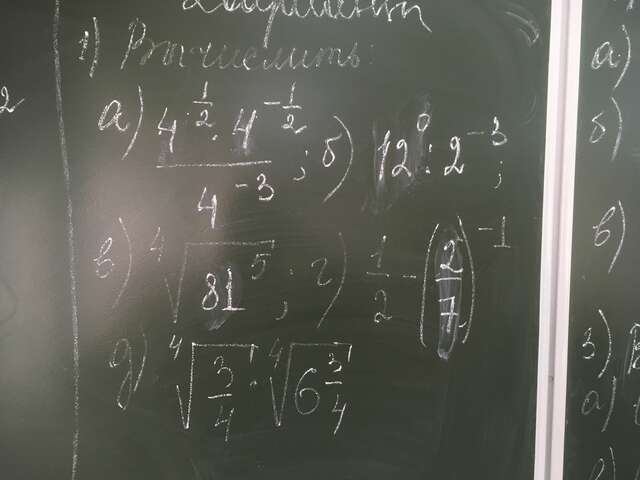 1) Вычислить:
а) (4^(1/2) · 4^(-1/2)) / 4^(-3) ; б) 12^0 : 2^(-3) ;
в) ⁴√(81^5) ; г) 1/2 - (2/7)^(-1)
д) ⁴√(3/4) · ⁴√(6 3/4)
2
а)
б)
в)
3)
а)